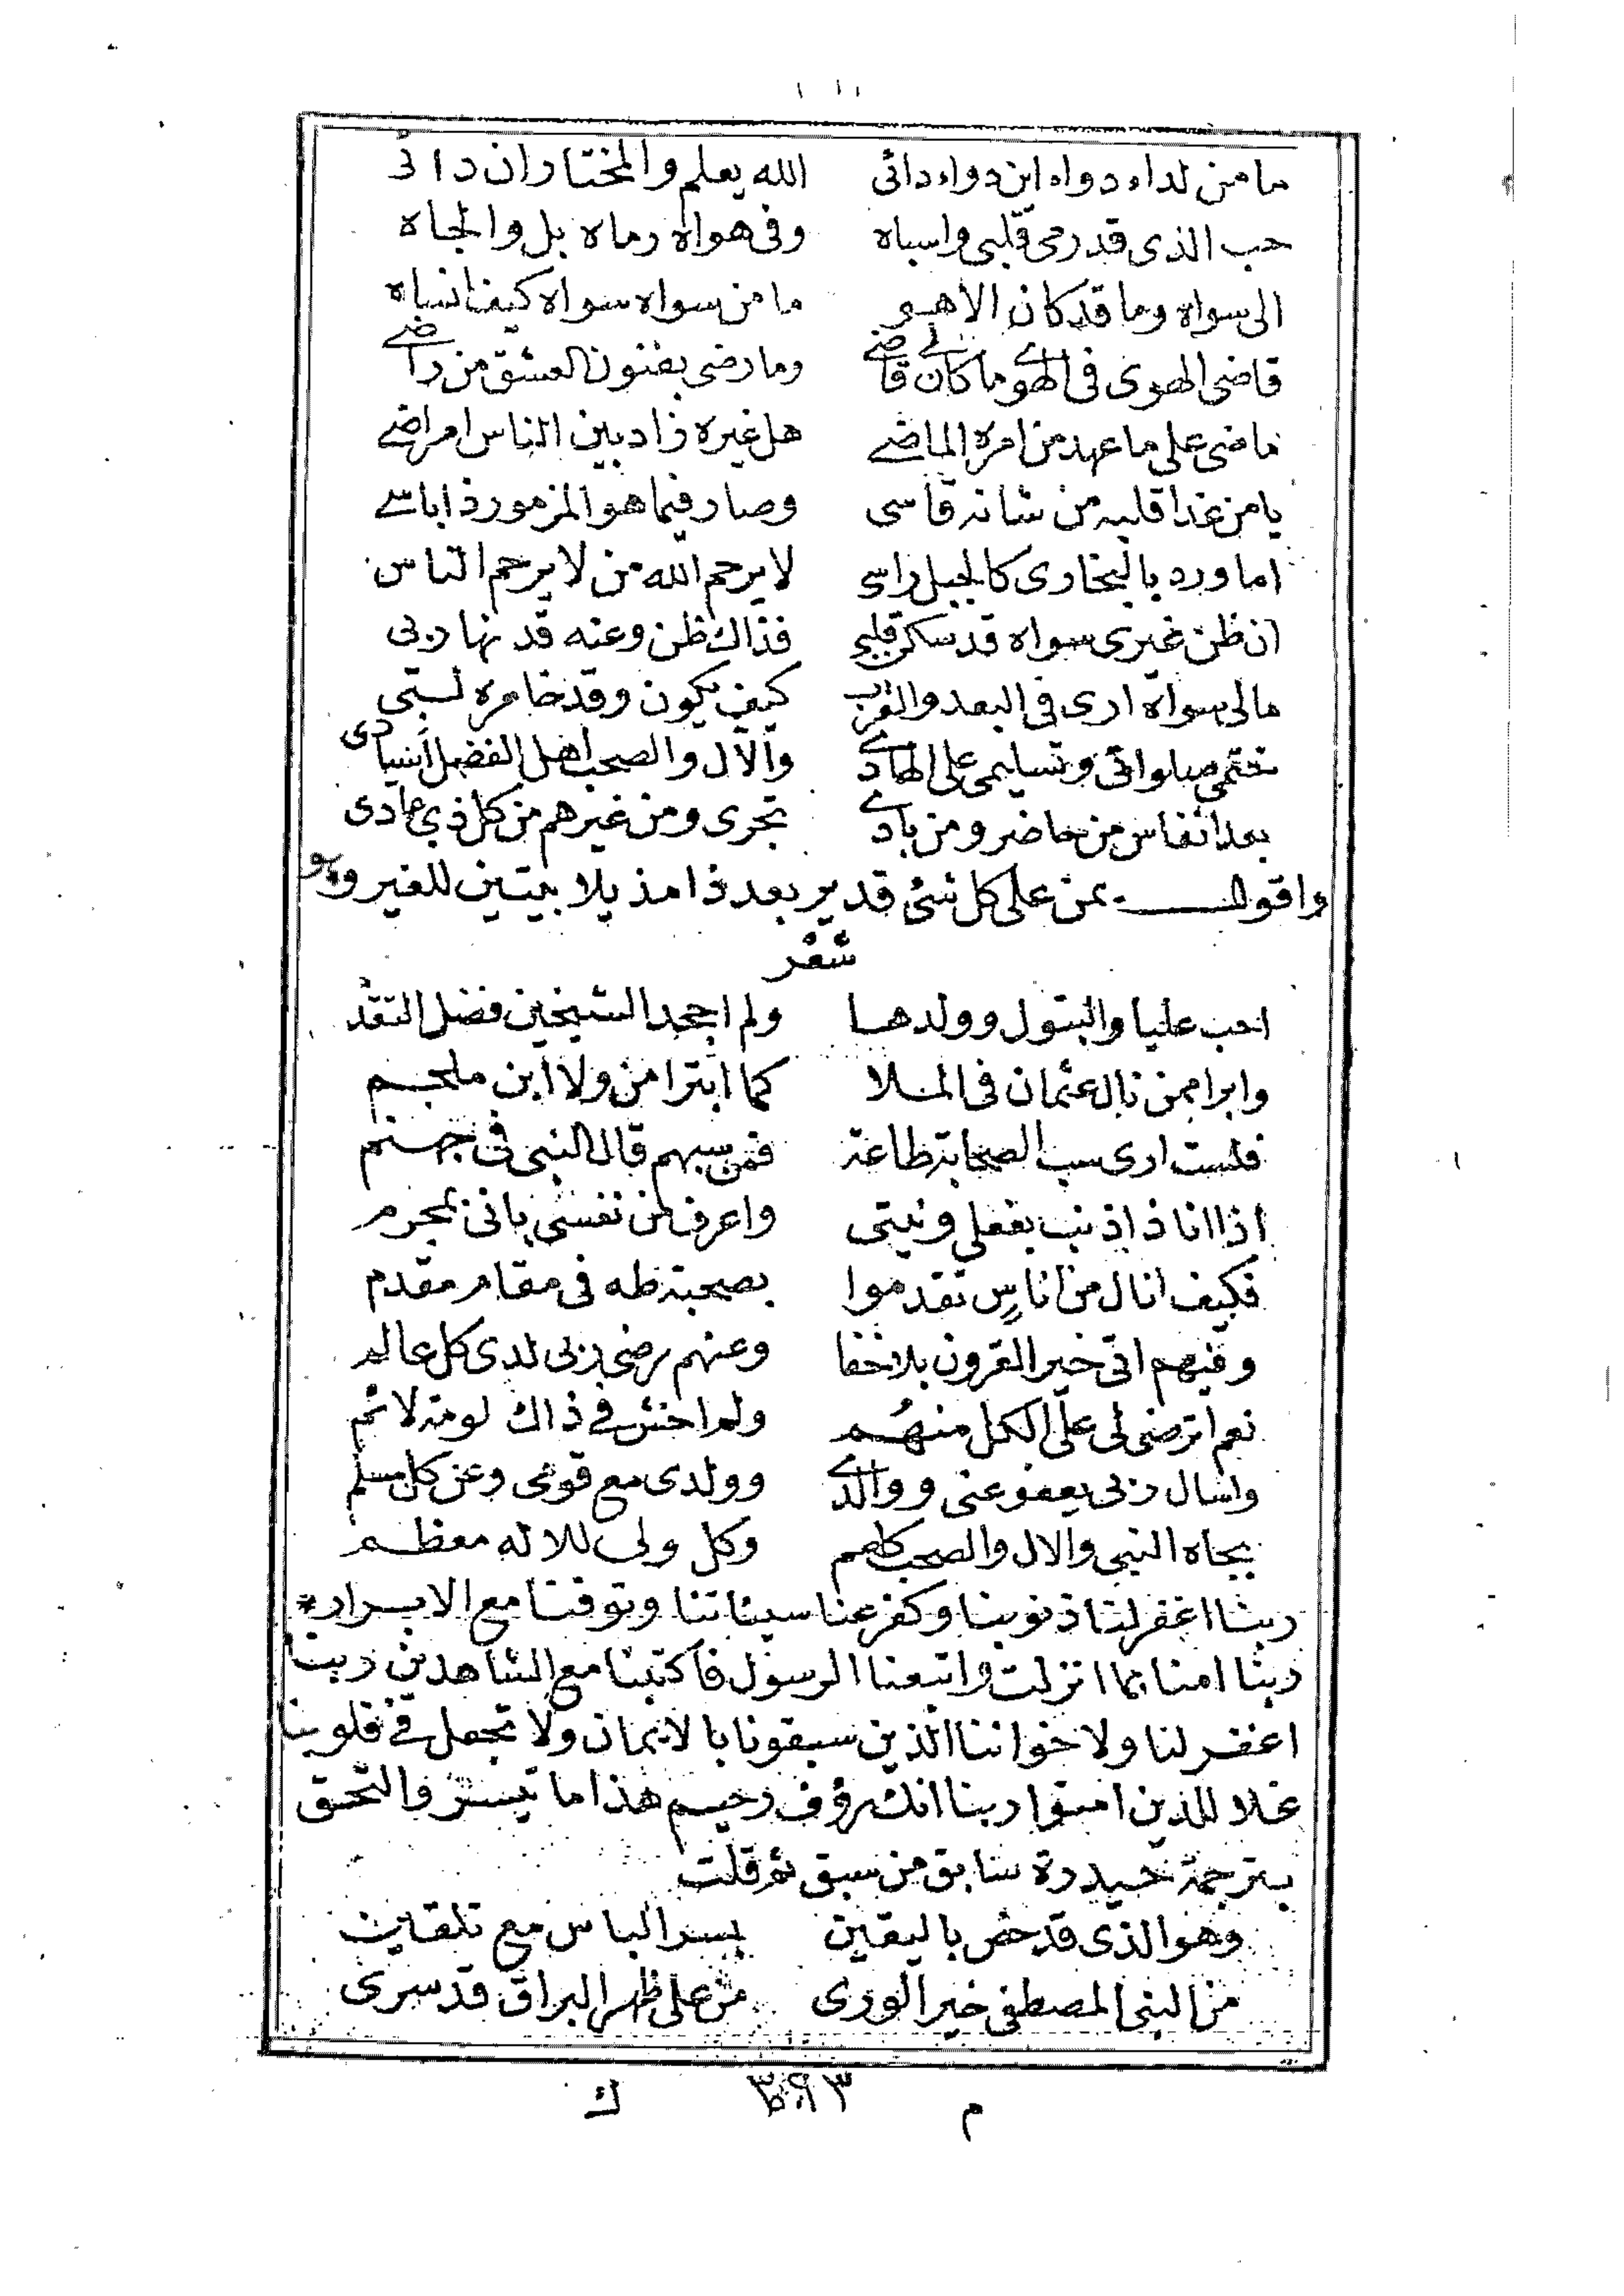 ما من لداء دواه اين دواء دائى الله يعلم والمختار ان دائى
حب الذى قد رمى قلبى واسباه وفى هواه رماه بل والجاه
الى سواه وما قد كان الاهو ما من سواه سواه كيف انساه
قاضى الهوى فى الهوى ما كان لى قاضى وما رضى بفنون العشق من راضى
ماضى على ما عهد من امره الماضى هل غيره زاد بين الناس امراضى
يا من غدا قلبه من شانه قاسى وصار فيما هو المزمور ذا باسى
اما ورد بالبخارى كالجبل راسى لا يرحم الله من لا يرحم الناس
ان ظن غيرى سواه قد سكن قلبى فذاك ظن وعنه قد نها ربى
مالى سواه ارى فى البعد والقرب كيف يكون وقد خامره لبتى
ختمى صلواتى وتسليمى على الهادى والآل والصحب اهل الفضل اسيادى
بعد انفاس من حاضر ومن بادى تجرى ومن غيرهم من كل ذى عادى
واقول بمن على كل شئ قدير بعد ذا مذيلا ببيتين للغير وهو
شعر
احب عليا والبتول وولدها ولم اجحد الشيخين فضل التقد
وابرا ممن نال عثمان فى الملا كما ابترا من ولا ابن ملجم
فلست ارى سب الصحابة طاعة فمن سبهم قال النبى فى جهنم
اذا انا ذا ذنب بفعلى ونيتى واعرف من نفسى بانى لمجرم
فكيف انال من اناس تقدموا بصحبة طه فى مقام مقدم
وفيهم اتى خير القرون بلا خفا وعنهم رضى ربى لدى كل عالم
نعم اترضى لى على الكل منهم ولم اخش فى ذاك لومة لائم
واسال ربى يعفو عنى ووالدى وولدى مع قومى وعن كل مسلم
بجاه النبى والال والصحب كلهم وكل ولى للاله معظم
ربنا اغفر لنا ذنوبنا وكفر عنا سيئاتنا وتوفنا مع الابرار *
ربنا امنا بما انزلت واتبعنا الرسول فاكتبنا مع الشاهدين ربنا
اغفر لنا ولاخواننا الذين سبقونا بالايمان ولا تجعل فى قلوبنا
غلا للذين امنوا ربنا انك رؤف رحيم هذا ما تيسر والتحق
بترجمة حيدرة سابق من سبق ثم قلت
وهو الذى قد خص باليقين بسر الباس مع تلقين
من النبى المصطفى خير الورى من على ظهر البراق قد سرى
م ك